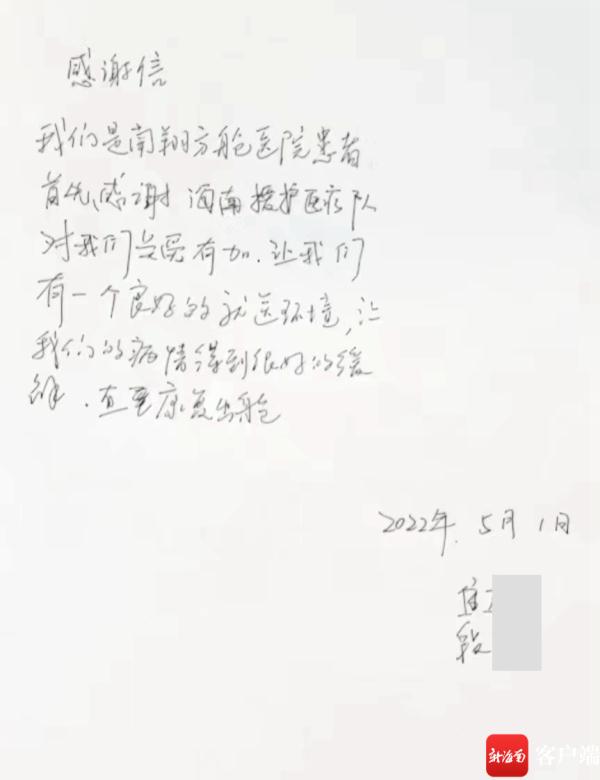 感谢信
我们是南翔方舱医院患者
首先感谢海南援护医疗队
对我们关爱有加.让我们
有一个良好的就医环境,让
我们的病情得到很好的缓
解.直至康复出舱
2022年.5月1日
段
新海南 客户端